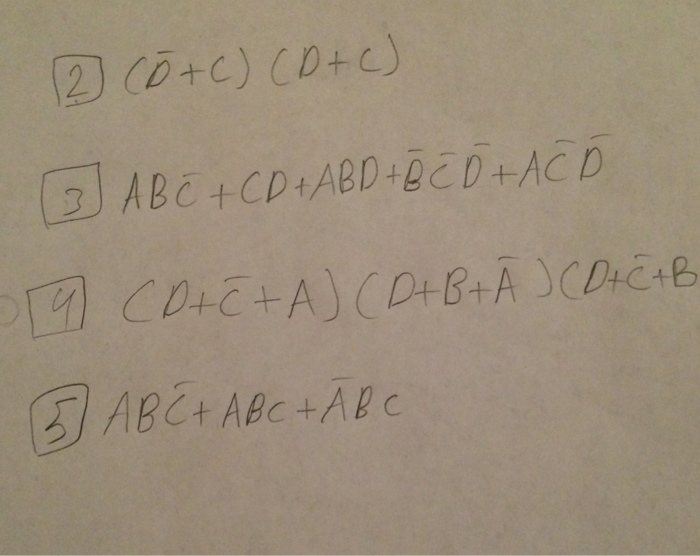 2 (D̄+C) (D+C)
3 ABC̄+CD+ABD+B̄C̄D̄+AC̄D̄
4 (D+C̄+A)(D+B+Ā)(D+C̄+B
5 ABC̄+ABC+ĀBC